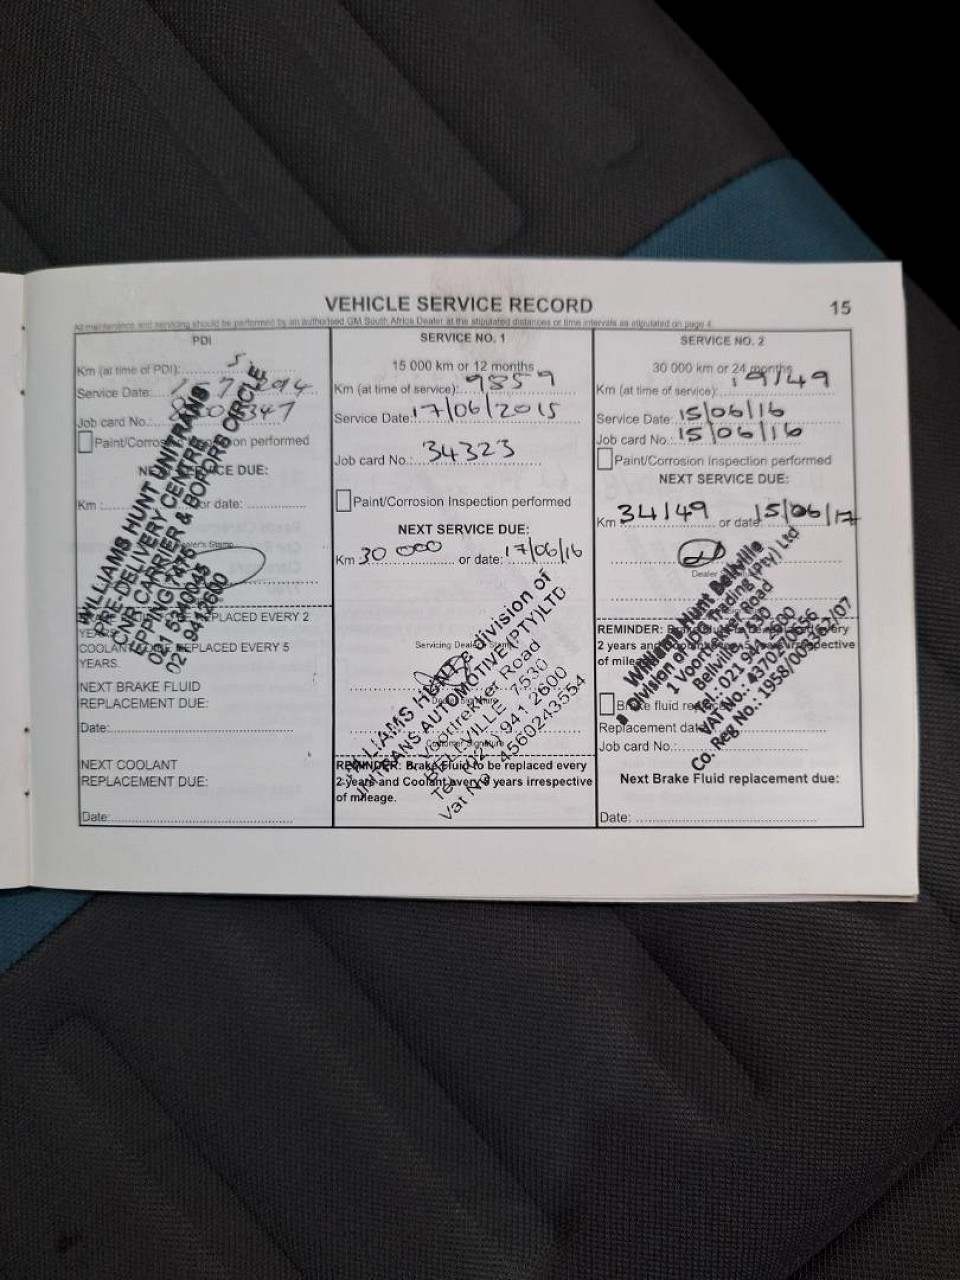 VEHICLE SERVICE RECORD
15
All maintenance and servicing should be performed by an authorised GM South Africa Dealer at the stipulated distances or time intervals as stipulated on page 4
PDI
Km (at time of PDI): 5
Service Date:
Job card No.:
Paint/Corrosion performed
NEXT SERVICE DUE:
Km : or date:
Dealer's Stamp
WILLIAMS HUNT UNITRANS
PRE-DELIVERY CENTRE
CNR CARRIER & BOFORS CIRCLE
EPPING 7475
021 5340045
02 9412600
REPLACED EVERY 2
YEARS
COOLANT REPLACED EVERY 5
YEARS.
NEXT BRAKE FLUID
REPLACEMENT DUE:
Date:
NEXT COOLANT
REPLACEMENT DUE:
Date:
SERVICE NO. 1
15 000 km or 12 months
Km (at time of service): 9859
Service Date: 17/06/2015
Job card No.: 34323
Paint/Corrosion Inspection performed
NEXT SERVICE DUE:
Km 30 000 or date: 17/06/16
Servicing Dealer's Stamp
Dealer Signature
Customer Signature
WILLIAMS HUNT a division of
UNITRANS AUTOMOTIVE(PTY)LTD
Voortrekker Road
BELLVILLE 7530
Tel: (021) 941 2600
Vat No: 4560243554
REMINDER: Brake Fluid to be replaced every
2 years and Coolant every 5 years irrespective
of mileage.
SERVICE NO. 2
30 000 km or 24 months
Km (at time of service): 19149
Service Date: 15/06/16
Job card No.: 15/06/16
Paint/Corrosion Inspection performed
NEXT SERVICE DUE:
Km 34149 or date: 15/06/17
Dealer
Williams Hunt Bellville
Division of Trading (Pty) Ltd
1 Voortrekker Road
Bellville, 7530
Tel.: 021 941 2600
VAT No.:
Co. Reg No.:
REMINDER: every
2 years and irrespective
of mileage
Brake fluid
Replacement date
Job card No.:
Next Brake Fluid replacement due:
Date: